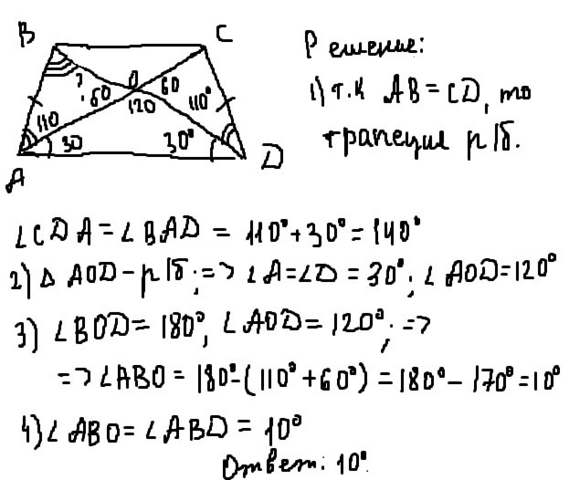 B C
? O 60 60 120 110° 110
30 30°
A D
Решение:
1) т.к AB = CD, то
трапеция р/б.
∠CDA = ∠BAD = 110° + 30° = 140°
2) Δ AOD - р/б ; => ∠A = ∠D = 30° ; ∠AOD = 120°
3) ∠BOD = 180°, ∠AOD = 120° ; =>
=> ∠ABO = 180° - (110° + 60°) = 180° - 170° = 10°
4) ∠ABO = ∠ABD = 10°
Ответ: 10°.